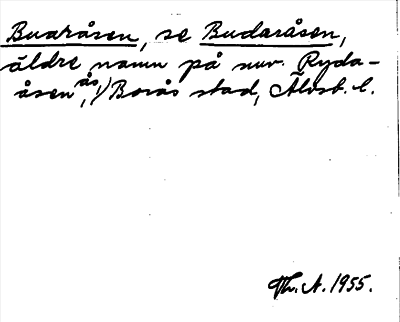 Buaråsen, se Budaråsen,
äldre namn på nuv. Ryda-
åsen, ås, Borås stad, Älvsb. l.
Th. A. 1955.